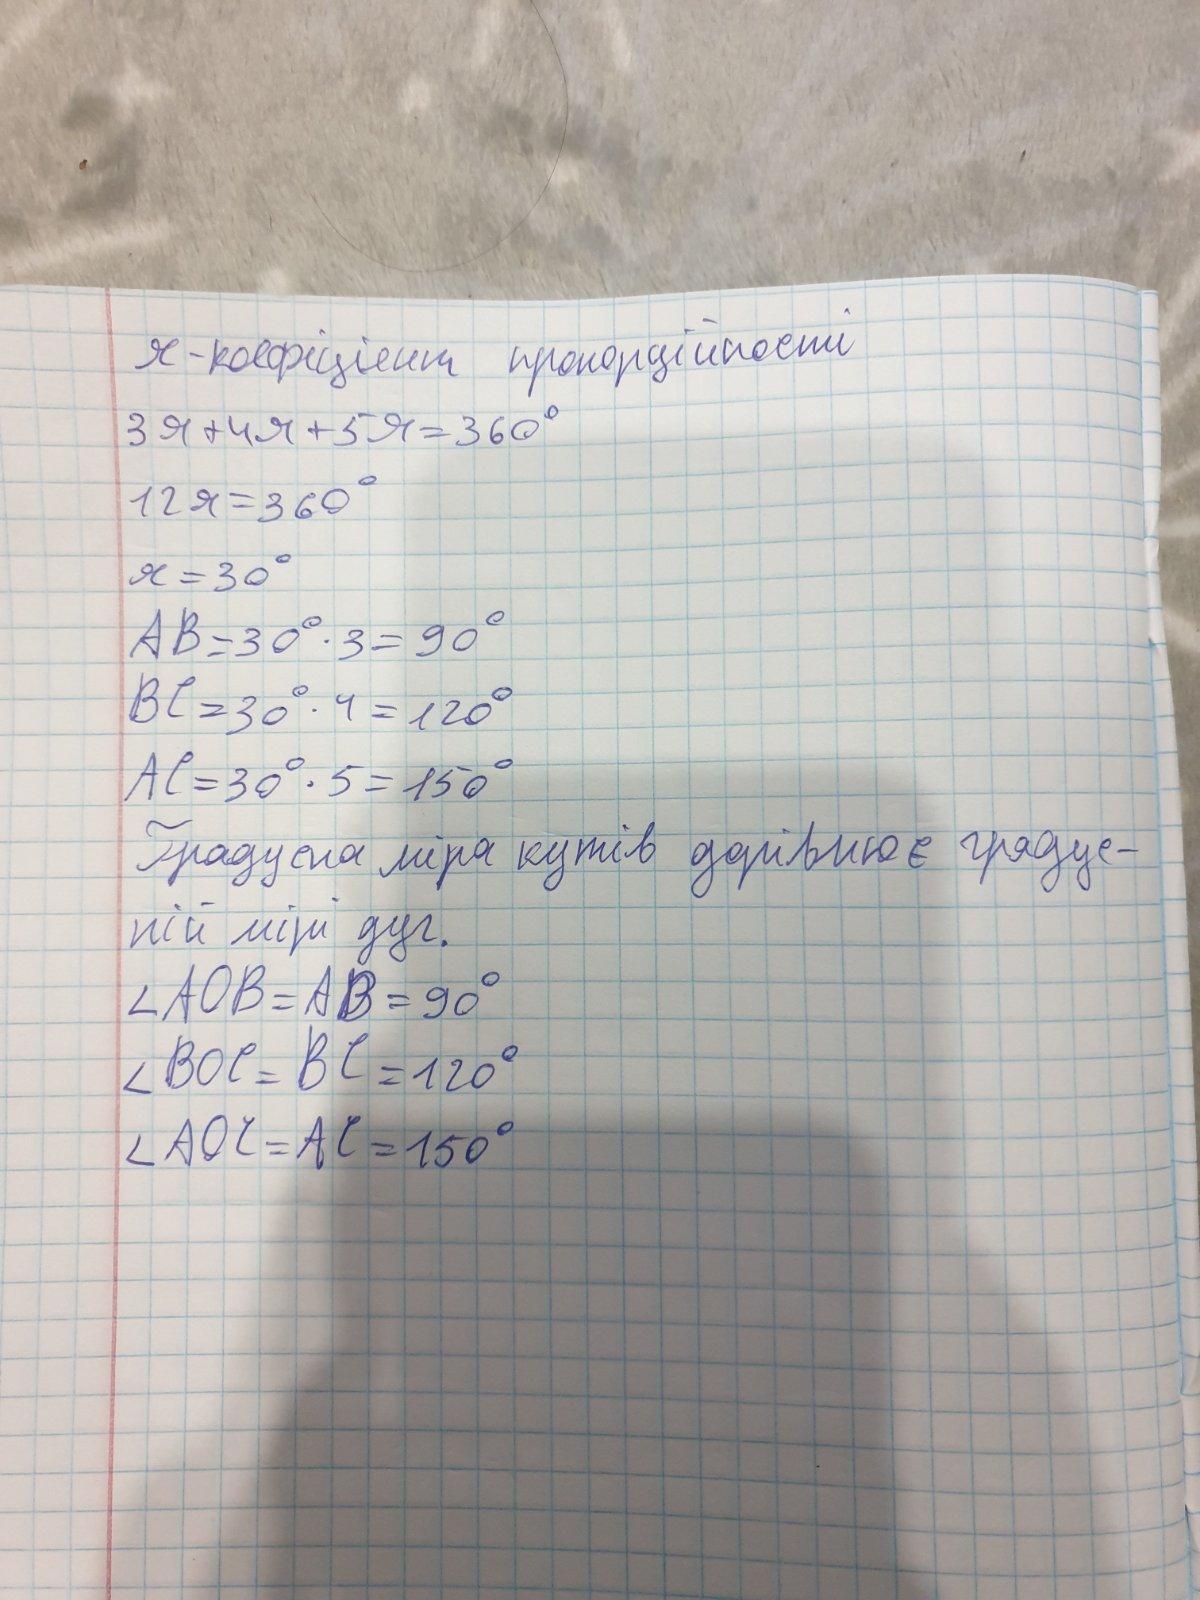 x-коефіцієнт пропорційності
3x+4x+5x=360°
12x=360°
x=30°
AB=30°·3=90°
BC=30°·4=120°
AC=30°·5=150°
Градусна міра кутів дорівнює градус-
ній мірі дуг.
∠AOB=AB=90°
∠BOC=BC=120°
∠AOC=AC=150°